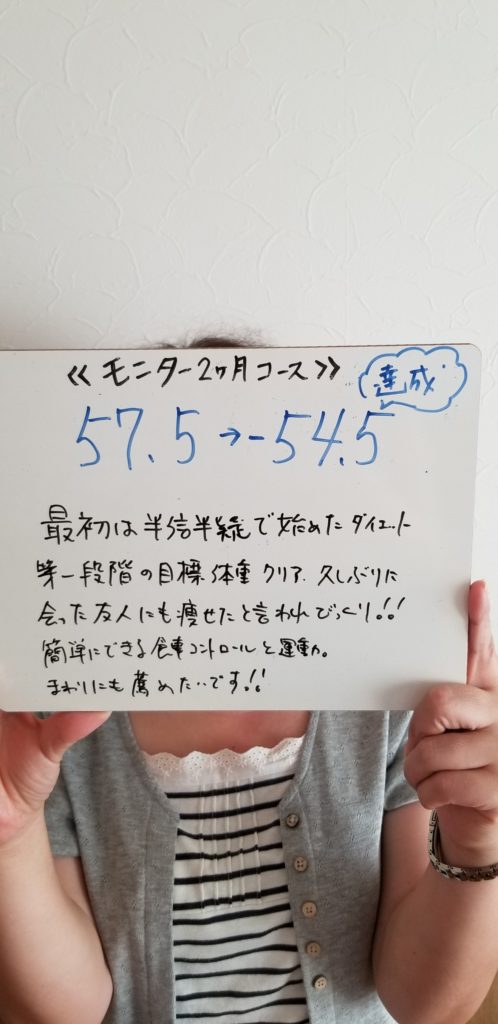 ≪モニター2ヶ月コース≫
達成
57.5→-54.5
最初は半信半疑で始めたダイエット
第一段階の目標体重クリア.久しぶりに
会った友人にも痩せたと言われびっくり!!
簡単にできる食事コントロールと運動。
まわりにも薦めたいです!!